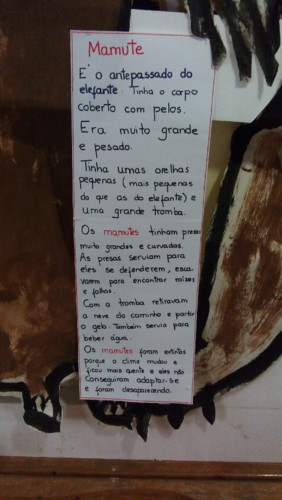 Mamute
É o antepassado do
elefante. Tinha o corpo
coberto com pelos.
Era muito grande
e pesado.
Tinha umas orelhas
pequenas (mais pequenas
do que as do elefante) e
uma grande tromba.
Os mamutes tinham presas
muito grandes e curvadas.
As presas serviam para
eles se defenderem, esca-
varem para encontrar raízes
e folhas.
Com a tromba retiravam
a neve do caminho e partir
o gelo. Também servia para
beber água.
Os mamutes foram extintos
porque o clima mudou e
ficou mais quente e eles não
conseguiram adaptar-se
e foram desaparecendo.